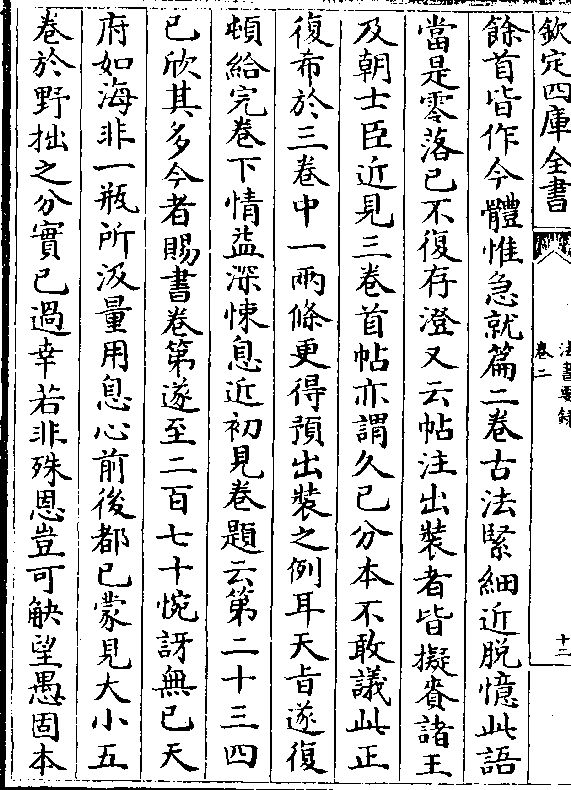 欽定四庫全書
法書要録
卷二
十二
餘首皆作今體惟急就篇二卷古法緊細近脱憶此語
當是零落已不復存澄又云帖注出裝者皆擬賚諸王
及朝士臣近見三卷首帖亦謂久已分本不敢議此正
復布於三卷中一兩條更得預出裝之例耳天㫖遂復
頓給完卷下情益深悚息近初見卷題云第二十三四
已欣其多今者賜書卷第遂至二百七十惋訝無已天
府如海非一瓶所汲量用息心前後都已蒙見大小五
卷於野拙之分實已過幸若非殊恩豈可觖望愚固本